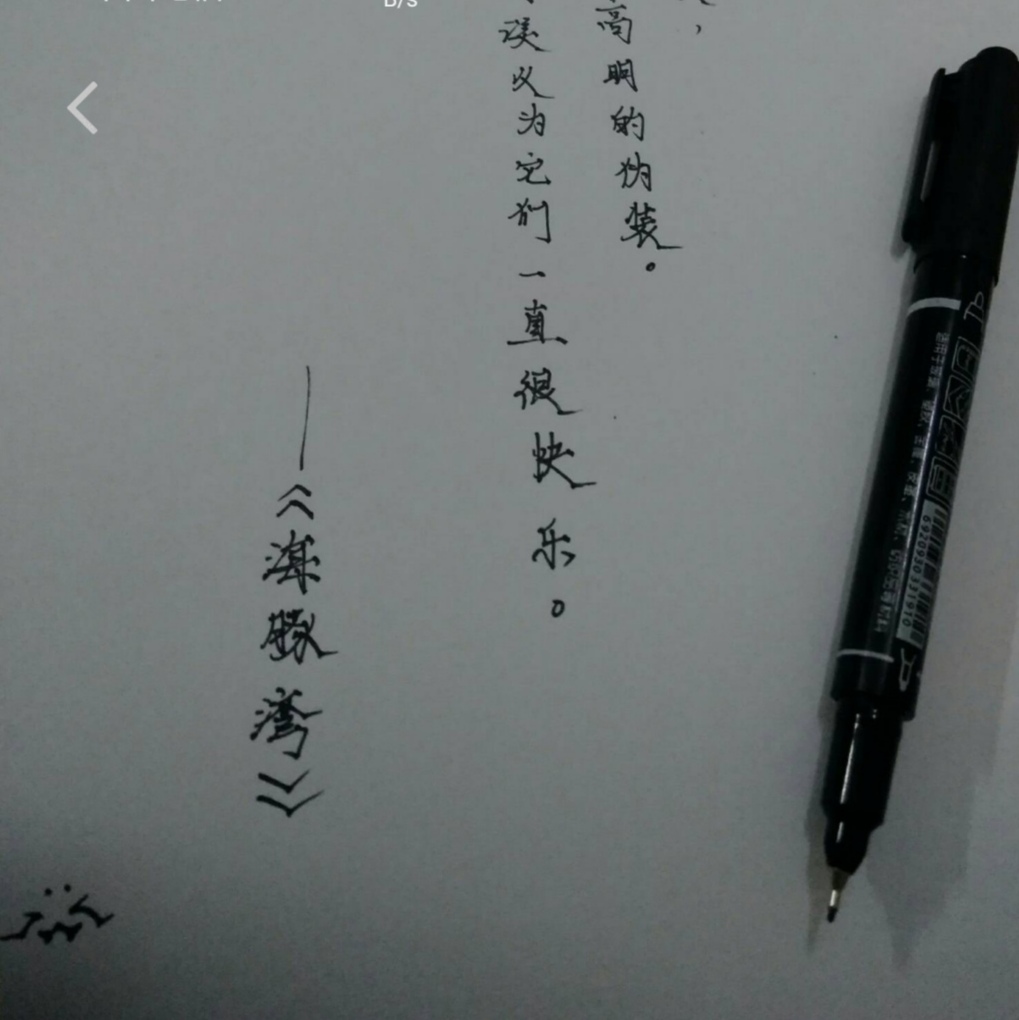 高明的伪装。
误以为它们一直很快乐。
——《海豚湾》
B/s
6920930331910